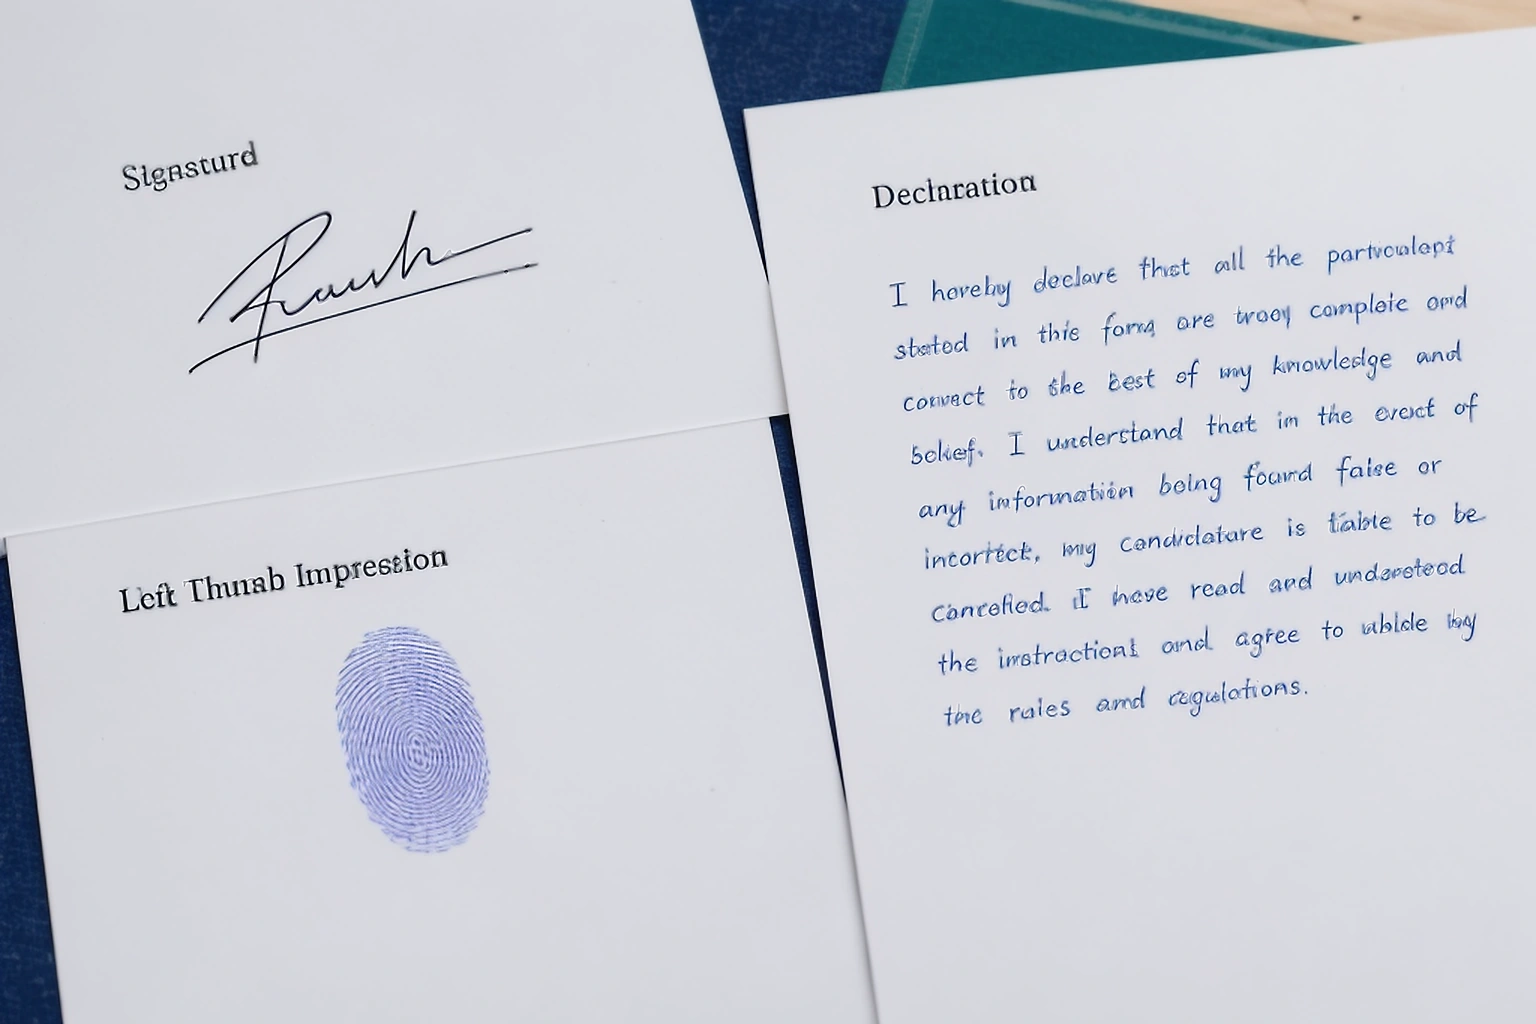 Signsturd
Left Thunab Impression
Declaration
I hereby declare thst all the
stated in this form are complete and
to the best of my knowledge and
belief. I understand that in the event of
any information being found false or
incorrect, my candidature is liable to be
I have read and understood
the instructions and agree to by
the rules and regulations.